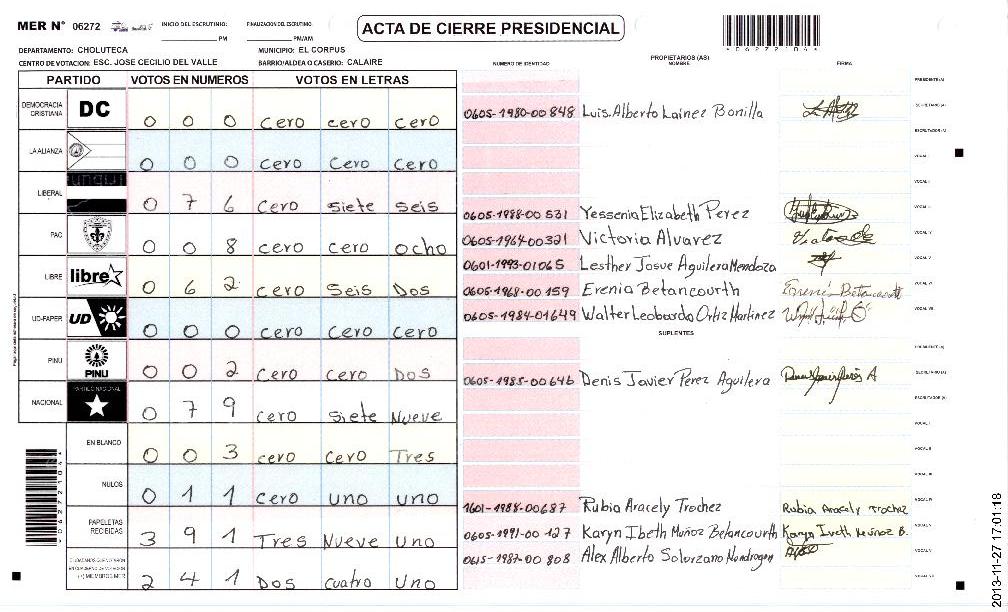 MER N° 06272 INICIO DEL ESCRUTINIO: PM FINALIZACION DEL ESCRUTINIO: PM/AM ACTA DE CIERRE PRESIDENCIAL
DEPARTAMENTO: CHOLUTECA MUNICIPIO: EL CORPUS
CENTRO DE VOTACION: ESC. JOSE CECILIO DEL VALLE BARRIO/ALDEA O CASERIO: CALAIRE
PARTIDO VOTOS EN NUMEROS VOTOS EN LETRAS
DEMOCRACIA CRISTIANA DC 0 0 0 cero cero cero
LA ALIANZA 0 0 0 cero Cero Cero
LIBERAL 0 7 6 Cero siete seis
PAC 0 0 8 cero cero ocho
LIBRE libre 0 6 2 cero Seis Dos
UD-FAPER UD 0 0 0 cero Cero Cero
PINU PINU 0 0 2 Cero Cero Dos
NACIONAL PARTIDO NACIONAL 0 7 9 cero Siete Nueve
EN BLANCO 0 0 3 cero Cero Tres
NULOS 0 1 1 Cero uno uno
PAPELETAS RECIBIDAS 3 9 1 Tres Nueve Uno
2 4 1 Dos cuatro Uno
NUMERO DE IDENTIDAD PROPIETARIOS (AS) NOMBRE FIRMA
PRESIDENTE(A)
0605-1980-00848 Luis Alberto Lainez Bonilla SECRETARIO (A)
ESCRUTADOR (A)
VOCAL I
VOCAL II
0605-1988-00531 Yessenia Elizabeth Perez
0605-1964-00321 Victoria Alvarez VOCAL IV
0601-1993-01065 Lesther Josue Aguilera Mendoza VOCAL V
0605-1968-00159 Erenia Betancourth VOCAL VI
0605-1984-01649 Walter Leobardo Ortiz Martinez VOCAL VII
SUPLENTES
PRESIDENTE(A)
0605-1985-00646 Denis Javier Perez Aguilera SECRETARIO (A)
ESCRUTADOR (A)
VOCAL I
VOCAL II
VOCAL III
1601-1984-00687 Rubia Aracely Trochez Rubia Aracely Trochez VOCAL IV
0605-1991-00127 Karyn Ibeth Muñoz Betancourth Karyn Iveth Muñoz B. VOCAL V
0615-1987-00808 Alex Alberto Solorzano Mondragon
VOCAL VII
062721044
062721044
2013-11-27 17:01:18